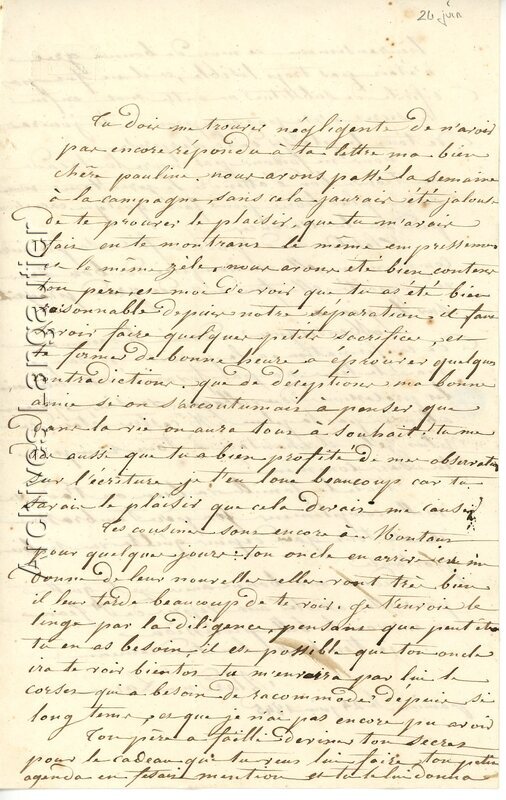 26 juin
Tu dois me trouver négligente de n'avoir
pas encore répondu à ta lettre ma bien
chère pauline. nous avons passé la semaine
à la campagne, sans cela j'aurais été jalouse
de te prouver le plaisir, que tu m'avais
fait en te montrant le même empressement
le même zèle, nous avons été bien contens
ton père et moi de voir que tu as été bien
raisonnable depuis notre séparation. il faut
savoir faire quelques petits sacrifices, et
te former de bonne heure a éprouver quelques
contradictions. que de déceptions ma bonne
amie si on s'accoutumait à penser que
dans la vie on aura tous à souhait! tu me
dis aussi que tu a bien profité de mes observations
sur l'écriture je t'en loue beaucoup car tu
savais le plaisir que cela devais me causer
Tes cousines sont encore à Montaut
pour quelques jours: ton oncle en arrive
donne de leur nouvelle elles vont très bien
il leur tarde beaucoup de te voir. je t'envoie le
linge par la diligence pensant que peut être
tu en as besoin, il est possible que ton oncle
ira te voir bientôt tu m'enverra par lui le
corset qui a besoin de racommoder depuis si
long tems, et que je n'ai pas encore pu avoir
Ton père a faillé deviner ton secret
pour le cadeau que tu veux lui faire, ton petit
agenda en fesait mention et tu le lui donna
Archives Langautier